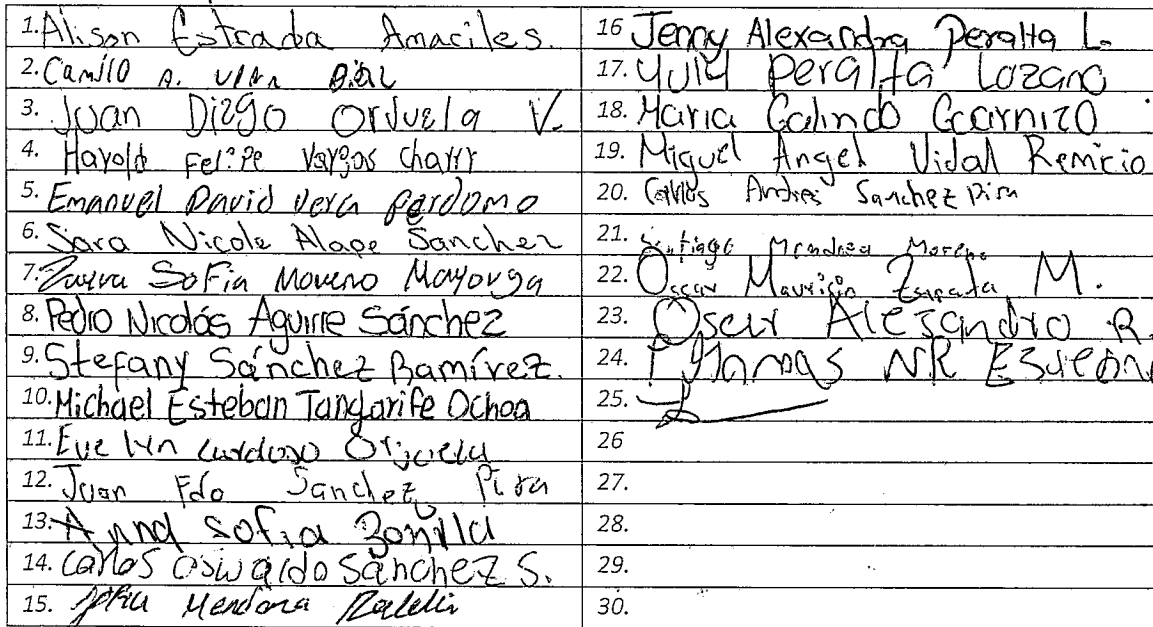 1. Alison Estrada Amaciles.
2. Camilo A.
3. Juan Diego Orjuela V.
4. Harold Felipe Vargas Charry
5. Emanuel David Vera Perdomo
6. Sara Nicole Alape Sanchez
7. Zaira Sofia Moreno Mayorga
8. Pedro Nicolás Aguirre Sánchez
9. Stefany Sánchez Ramírez.
10. Michael Esteban Tangarife Ochoa
11. Evelyn Cardoso Orjuela
12. Juan Fdo Sanchez Pira
13. Anna Sofia Bonilla
14. Carlos Oswaldo Sánchez S.
15. Mendoza
16 Jenny Alexandra Peralta L.
17. Yuly Peralta Lozano
18. Maria Galindo Guarnizo
19. Miguel Angel Vidal Remicio
20. Carlos Andres Sanchez Pira
21. Santiago Mendoza Moreno
22. Oscar Mauricio Zapata M.
23. Oscar Alejandro R.
24. NR
25.
26
27.
28.
29.
30.